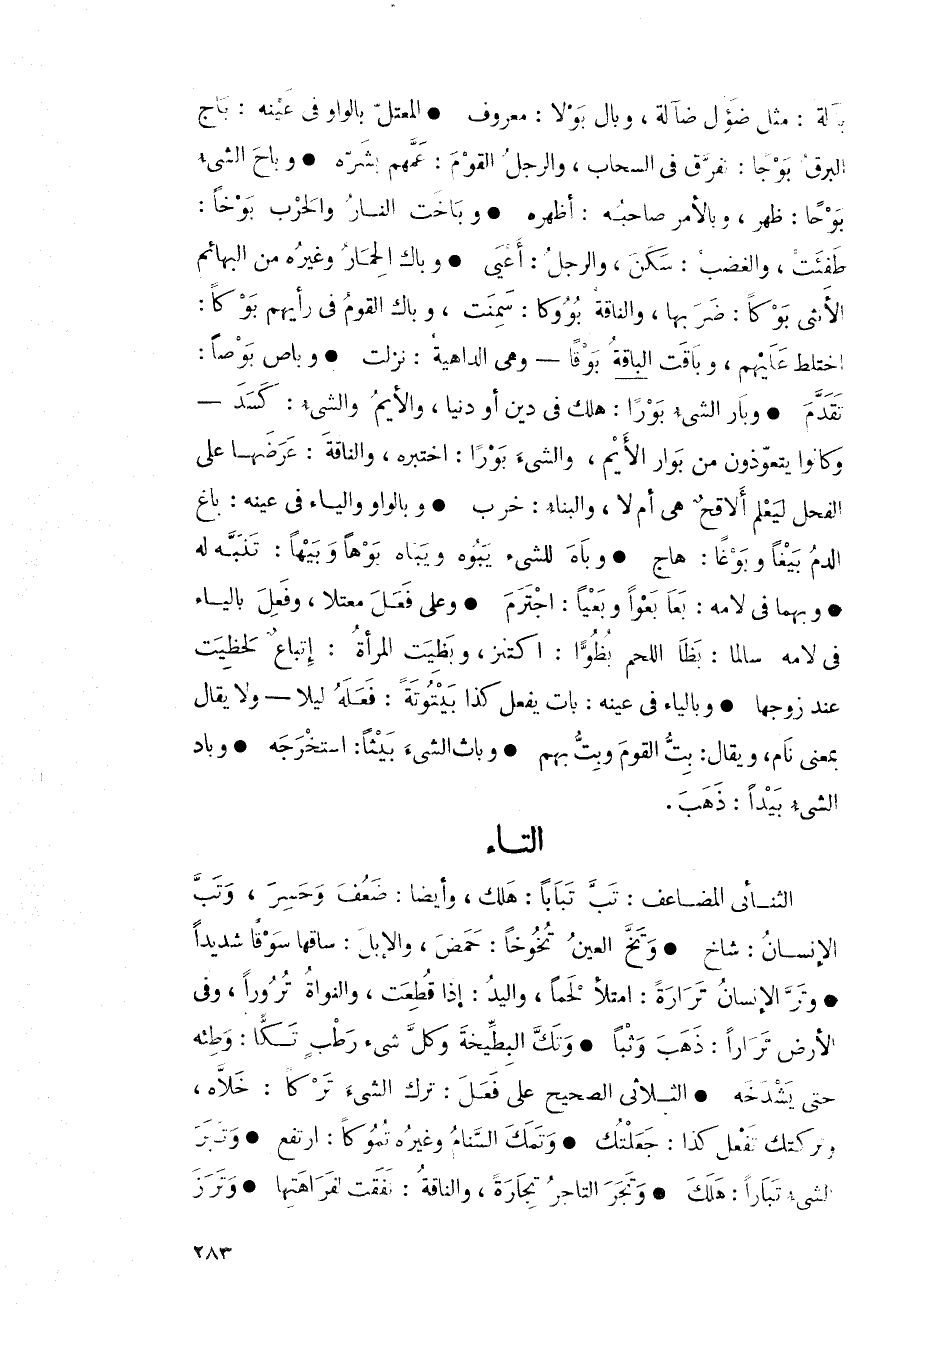 بآلة : مثل ضَؤُل ضآلة ، وبال بَوْلا : معروف ● المعتلّ بالواو فى عَيْنه : بَاج
البرقُ بَوْجا : تفرَّق فى السحاب ، والرجلُ القوْمَ : عَمَّهم بشَرّه ● وباحَ الشىء
بَوْحًا : ظهر ، وبالأمر صاحبُه : أظهره ● وبَاخَت النـارُ والحَرْب بَوْخاً :
طَفِئَتْ ، والغضبُ : سَكَنَ ، والرجلُ : أَعْيَى ● وباك الحِمَارُ وغيرُه من البهائم
الأنثى بَوْكاً : ضَرَبها ، والناقةُ بُوُوكا : سَمِنَت ، وباك القومُ فى رأيهم بَوْكاً :
اختلط عَلَيْهم ، وبَاقَت الباقةُ بَوْقًا — وهى الداهية : نزلت ● وباص بَوْصاً :
تَقَدَّمَ ● وبَار الشىء بَوْرًا : هلك فى دين أو دنيا ، والأيمُ والشىء : كَسَدَ —
وكانوا يتعوّذون من بَوار الأَيْم ، والشىءَ بَوْرًا : اختبره ، والناقةَ : عَرَضَهـا على
الفحل ليَعْلم ألاقحٌ هى أم لا ، والبناء : خرب ● وبالواو واليـاء فى عينه : باغ
الدمُ بَيْغاً وبَوْغًا : هاج ● وبَاهَ للشىء يَبُوه ويَبَاه بَوْهاً وبَيْهاً : تَنَبَّـه له
● وبهما فى لامه : بَعَا بَعْواً وبَعْياً : اجْتَرَمَ ● وعلى فَعَـلَ معتلا ، وفَعِلَ باليـاء
فى لامه سالما : بَظَا اللحم بُظُوًّا : اكتنز ، وبَظِيَت المرأةُ : إتباعٌ لحَظِيَت
عند زوجها ● وبالياء فى عينه : بات يفعل كذا بَيْتُوتَةً : فَعَـلَهُ ليلا — ولا يقال
بمعنى نَام، ويقال: بِتُّ القومَ وبِتُّ بهم ● وباث الشىءَ بَيْثاً: استخْرَجَه ● وباد
الشىء بَيْداً : ذَهَبَ .
التـاء
الثنـائى المضـاعف : تَبَّ تَبَاباً : هَلك ، وأيضا : ضَعُفَ وَخَسِرَ ، وَتَبَّ
الإنسـانُ : شاخ ● وَتَخَّ العينُ تُخُوخاً : حَمَضَ ، والإبلَ : ساقها سَوْقًا شديداً
● وتَرَّ الإنسانُ تَرَارَةً : امتلأ لَحْماً ، واليدُ : إذا قُطِعَت ، والنواةُ تُرُوراً ، وفى
الأرض تَرَاراً : ذَهَبَ وَثْباً ● وَتَكَّ البطِّيخةَ وكلَّ شىء رَطْبٍ تَـكًّا : وَطِئه
حتى يَشْدَخَه ● الثـلاثى الصحيح على فَعَـلَ : ترك الشىءَ تَرْكاً : خَلاَّه ،
وتركتك تفْعل كذا : جَعَلْتُك ● وَتَمَكَ السَّنامُ وغيرُه تُمُوكاً : ارتفع ● وَتَـبَرَ
الشىء تَبَاراً : هَلَكَ ● وَتَجَرَ التاجرُ تِجَارَةً ، والناقةُ : نَفَقَت لفَرَاهَتِها ● وَتَرَزَ
٢٨٣